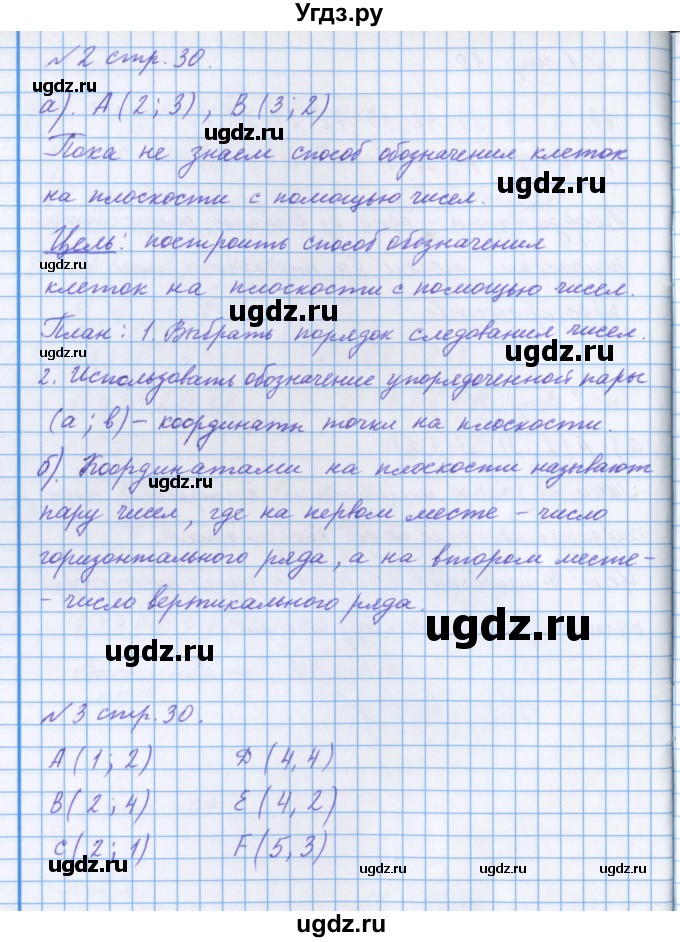 Угдз.ру
№2 стр. 30.
ugdz.ru
а). А (2; 3), В (3; 2)
ugdz.ru
Пока не знаем способ обозначения клеток
ugdz.ru
на плоскости с помощью чисел.
Цель: построить способ обозначения
ugdz.ru
клеток на плоскости с помощью чисел.
ugdz.ru
План: 1. Выбрать порядок следования чисел.
ugdz.ru
2. Использовать обозначение упорядоченной пары
(а; в) – координаты точки на плоскости.
б). Координатами на плоскости называют
ugdz.ru
пару чисел, где на первом месте – число
горизонтального ряда, а на втором месте –
– число вертикального ряда.
ugdz.ru
ugdz.ru
№3 стр. 30.
А (1; 2) D (4, 4)
В (2; 4) Е (4, 2)
С (2; 1) F (5, 3)
ugdz.ru ugdz.ru ugdz.ru ugdz.ru
ugdz.ru